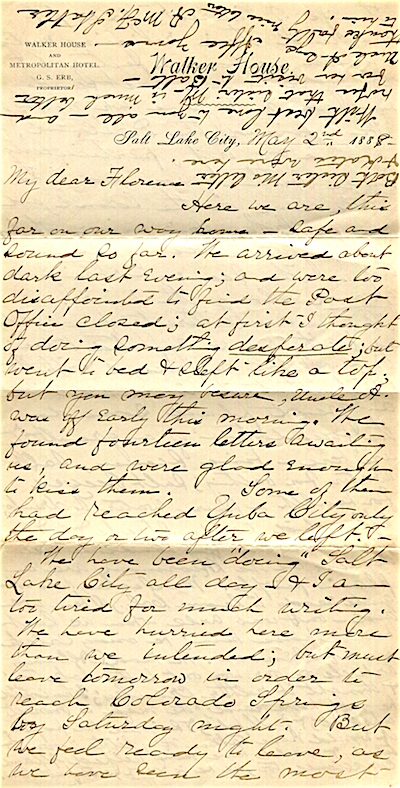 WALKER HOUSE
AND
METROPOLITAN HOTEL
G. S. ERB,
PROPRIETOR
Walker House.
Salt Lake City, May 2nd 1888-
My dear Florence
Here we are, this
far on our way home - safe and
sound so far. We arrived about
dark last evening; and were too
disappointed to find the Post
Office closed; at first I thought
of doing something desperate; but
went to bed & slept like a top;
but you may be sure, Uncle A.
was off early this morning. We
found fourteen letters awaiting
us, and were glad enough
to kiss them. Some of them
had reached Yuba City only
the day or two after we left. -
We have been "doing" Salt
Lake City all day - & I am
too tired for much writing.
We have hurried here more
than we intended; but must
leave tomorrow in order to
reach Colorado Springs
by Saturday night. But
we feel ready to leave, as
we have seen the most
With best love to em all - and
hope that sister is much better